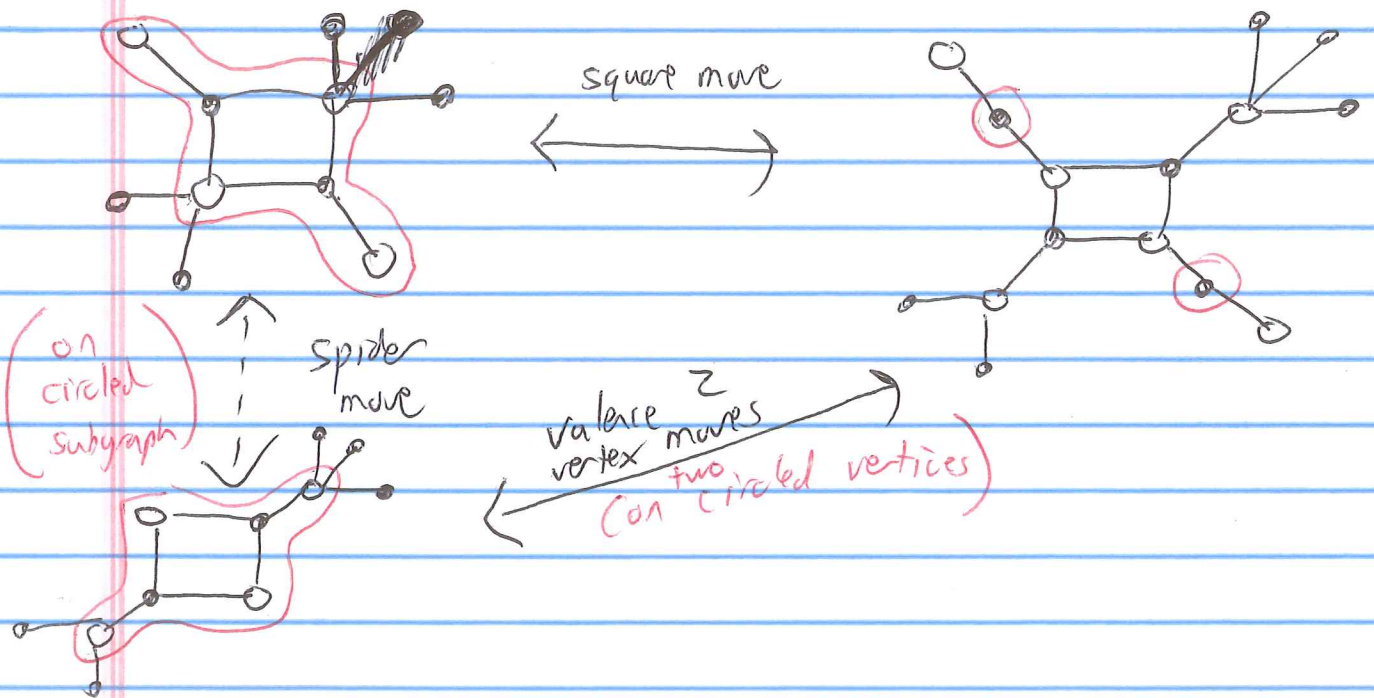 square move
(on
circled
subgraph)
spider
move
valence 2
vertex moves
(on two circled vertices)